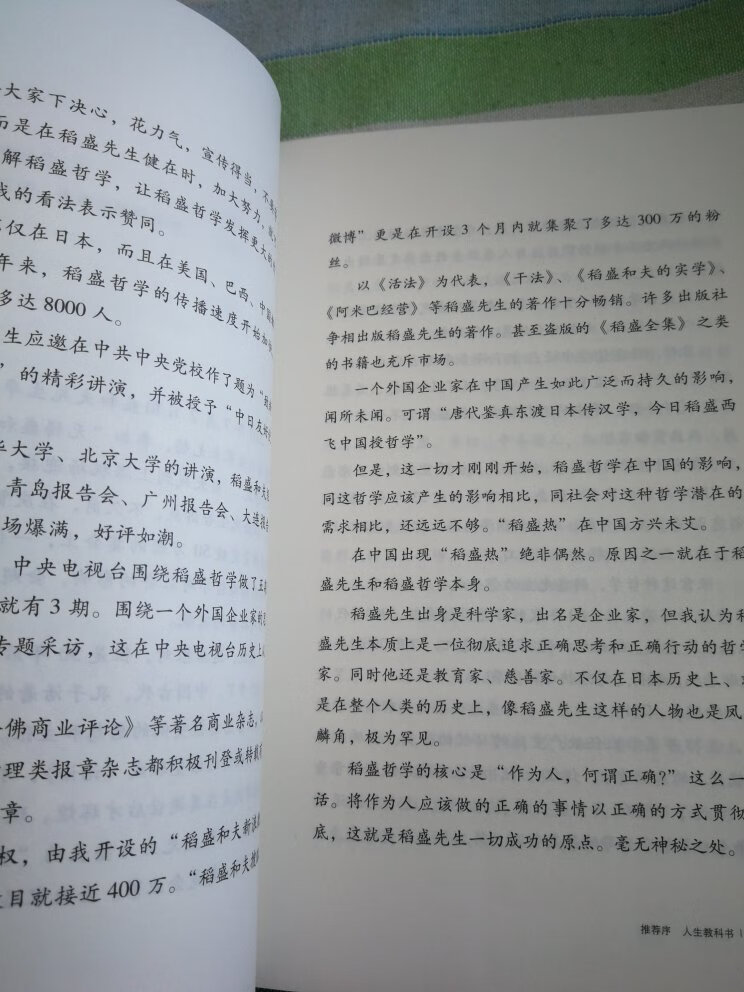 大家下决心，花力气，宣传得当，不
而是在稻盛先生健在时，加大努力，
解稻盛哲学，让稻盛哲学发挥更大的
我的看法表示赞同。
仅在日本，而且在美国、巴西、中国
年来，稻盛哲学的传播速度开始加
多达 8000 人。
生应邀在中共中央党校作了题为“
”的精彩讲演，并被授予“中日友好
华大学、北京大学的讲演，稻盛和夫
青岛报告会、广州报告会、大连报告
场爆满，好评如潮。
中央电视台围绕稻盛哲学做了五
就有 3 期。围绕一个外国企业家的
专题采访，这在中央电视台历史上
佛商业评论》等著名商业杂志，
理类报章杂志都积极刊登或转载
章。
权，由我开设的“稻盛和夫新浪
目就接近 400 万。“稻盛和夫
微博”更是在开设 3 个月内就集聚了多达 300 万的粉
丝。
以《活法》为代表，《干法》、《稻盛和夫的实学》、
《阿米巴经营》等稻盛先生的著作十分畅销。许多出版社
争相出版稻盛先生的著作。甚至盗版的《稻盛全集》之类
的书籍也充斥市场。
一个外国企业家在中国产生如此广泛而持久的影响，
闻所未闻。可谓“唐代鉴真东渡日本传汉学，今日稻盛西
飞中国授哲学”。
但是，这一切才刚刚开始，稻盛哲学在中国的影响，
同这哲学应该产生的影响相比，同社会对这种哲学潜在的
需求相比，还远远不够。“稻盛热”在中国方兴未艾。
在中国出现“稻盛热”绝非偶然。原因之一就在于稻
盛先生和稻盛哲学本身。
稻盛先生出身是科学家，出名是企业家，但我认为稻
盛先生本质上是一位彻底追求正确思考和正确行动的哲学
家。同时他还是教育家、慈善家。不仅在日本历史上、
是在整个人类的历史上，像稻盛先生这样的人物也是凤
麟角，极为罕见。
稻盛哲学的核心是“作为人，何谓正确？”这么一
话。将作为人应该做的正确的事情以正确的方式贯彻
底，这就是稻盛先生一切成功的原点。毫无神秘之处。
推荐序 人生教科书